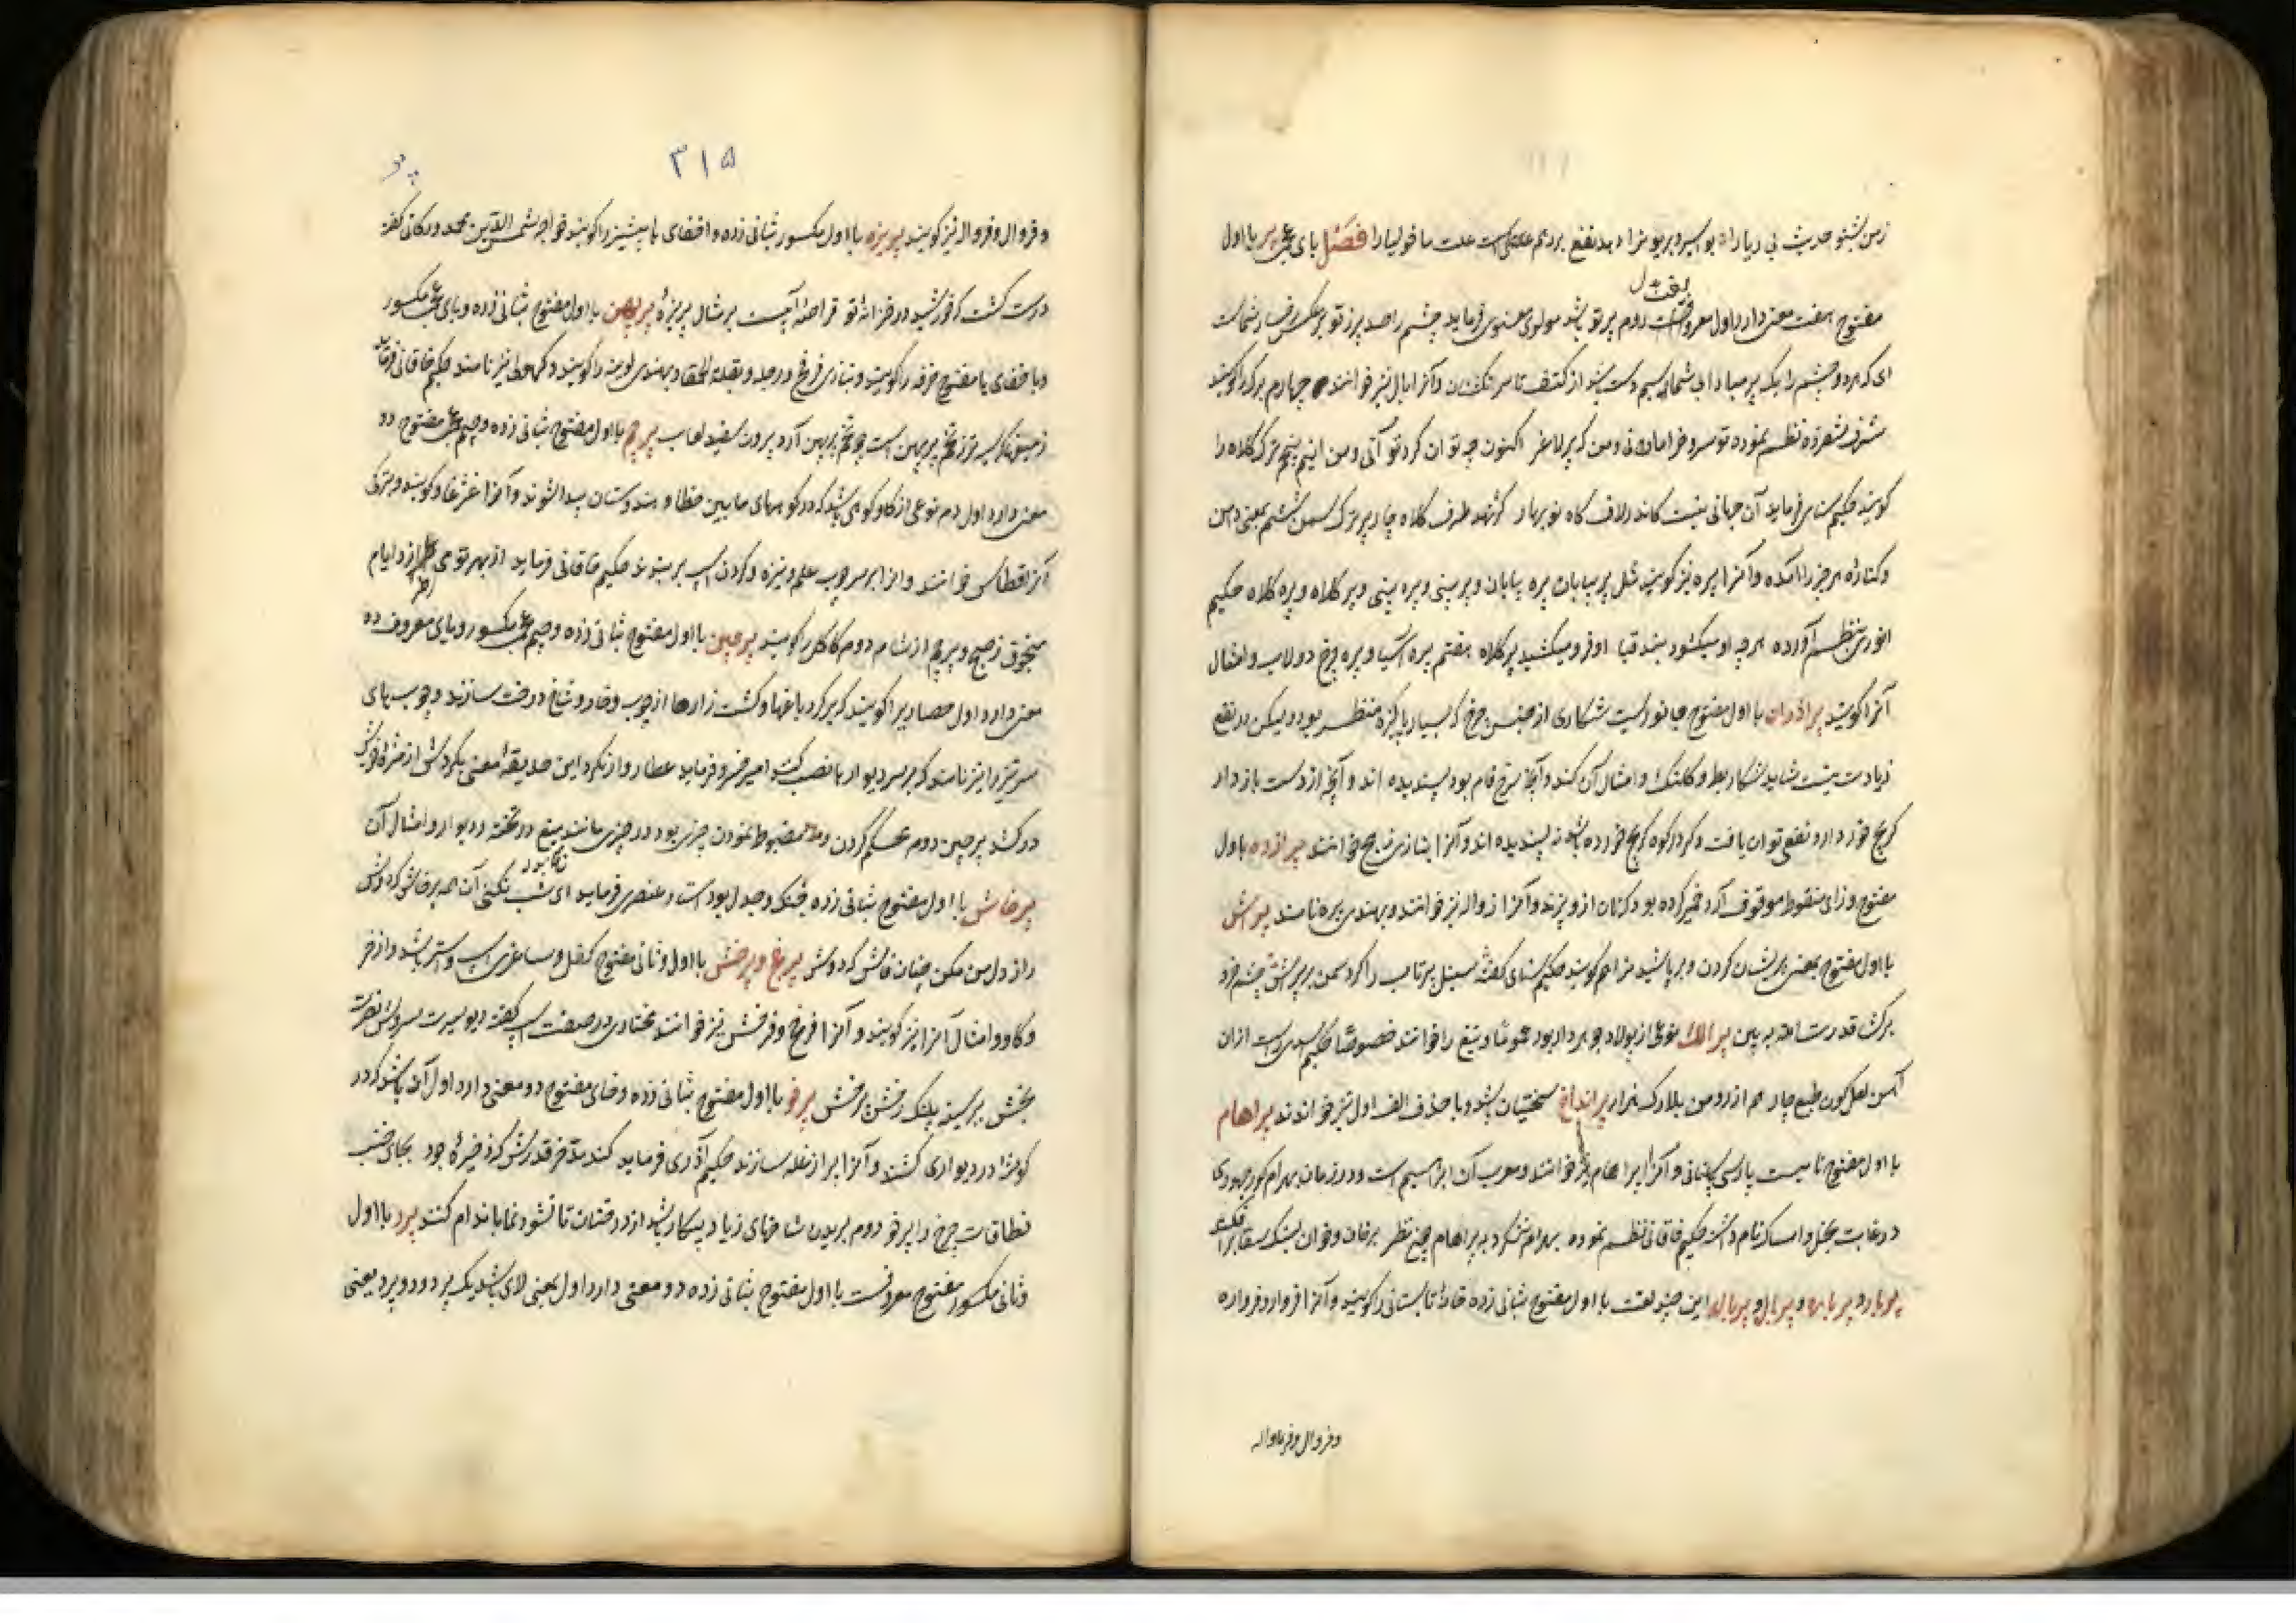 زمن بشنو حدیث بی ریا را نه بواسیر و بریو مزاد بد نفع بردهم علت ماخولیا را فصل بای عجمی پر با اول
مفتوح هفت معنی دارد اول معروفست دوم پرتو باشد مولوی معنوی فرماید چشم را صد پر ز تو بر عکس رخسار شماست
لغت بدل
ای که هر دو چشم را یک پر مبادا بی شما سیم دست باشد از کتف تا سر انگشتان و آنرا بال نیز خوانند چهارم برگ را گویند
شرف شفروه نظم نموده تو سرو خرامانی و من که پر لاغر اکنون چه توان کرد تو آنی و من اینم پنجم ترک کلاه را
گویند حکیم سنائی فرماید آن جهانی نیست کاندر لاف گاه نوبهار گوشهٔ طرف کلاه چار پر ترک سمن ششم بمعنی دامن
و کناره هر چیز را آمده و آنرا پره نیز گویند مثل پر بیابان پره بیابان و پر بینی و پره بینی و پر کلاه و پره کلاه حکیم
انوری بنظم آورده هر چه او میکشود بند قبا او فرو میکشید پر کلاه هفتم پره آسیا و پره چرخ دولاب و امثال
آنرا گویند پراذران با اول مفتوح جانوریست شکاری از جنس چرغ که بسیار پاکزه منظر بود و لیکن در نفع
زیادت نیست شاید شکار بط و کلنگ و امثال آن کند و آنچه سرخ فام بود پسندیده اند و آنچه از دست بازدار
کریج خورد دارد نفعی توان یافت و کرد در کوه کریج خورده باشد نه پسندیده اند و آنرا بتازی زمج خوانند پرازده با اول
مفتوح و زای منقوط موقوف آرد خمیر کرده بود که نان ازو پزند و آنرا زواله نیز خوانند و بهندی پیره نامند پراش
با اول مفتوح بمعنی پریشان کردن و بر پاشیدن را هم گویند حکیم سنای گفته سنبل پرتاب را کرد سمن بر پرش چشم خرد
برگ قدرت شاهد به بین پرالک نوعی از پولاد جوهردار بود عموماً و تیغ را خوانند خصوصاً حکیم اسدی راست ازان
آهن لعل گون طبع چار هم از روهن بلارک هزار پرانداخ سختیان باشد و با حذف الف اول نیز خوانده اند پراهام
با اول مفتوح نامیست پارسی باستانی و آنرا براهام نیز خوانند و معرب آن ابراهیم است و در زمان بهرام گور جهودی
در غایت بخل و امساک نام داشته حکیم خاقانی نظم نموده بهرام ننگرد به پراهام چون نظر بر خان و خوان لنبک سقا برافکند
پربار و پرباره و پربال و پرباله این چند لغت با اول مفتوح بثانی زده خانهٔ تابستانی را گویند و آنرا فروار و فرواره
و فروال و فرواله
و فروال و فرواله نیز گویند پریزه با اول مکسور بثانی زده و اخفای یا پشیز را گویند خواجه شمس الدین محمد درکانی گفته
۳۱۵
درست گشت که خورشید در خزانهٔ تو قراضهٔ ایست بر مثال پریزهٔ پرپهن با اول مفتوح بثانی زده و بای عجمی مکسور
و با خفای یا مفتوح خرفه را گویند و بتازی فرفخ و رجله و بقلة الحمقا و بهندی لونیه را گویند و کهوله نیز نامند حکیم خاقانی فرماید
ز حبش که سیه تر ز تخم پرپهن است چو تخم پرپهن آرد برون سفید لعاب پرچم با اول مفتوح بثانی زده و جیم عجمی مفتوح دو
معنی دارد اول دم نوعی از گاو کوهی باشد که در کوههای مابین خطا و هندوستان پیدا شوند و آنرا غژغاو گویند و بترکی
آنرا قطاس خوانند و آنرا بر سر چوب علم و نیزه و گردن اسپ بر بندند حکیم خاقانی فرماید از بهر تو می طرازد ایام
منجوق ز صبح و پرچم از شام دوم کاکل را گویند پرچین با اول مفتوح بثانی زده و جیم عجمی مکسور و یای معروف دو
معنی دارد اول حصاریرا گویند که بر گرد باغها و کشت زارها از چوب و خار و شاخ درخت سازند و چوب‌های
سر تیز را نیز نامند که بر سر دیوارها نصب کنند امیر خسرو فرماید عطار وار نگرد این حدیقهٔ معنی بگردش از مژه خویش
در کشد پرچین دوم محکم کردن و مضبوط نمودن چیزی بود در چیزی مانند میخ در تخته و دیوار و امثال آن
پرخاش با اول مفتوح بثانی زده جنگ و جدل بود استاد عنصری فرماید ای شب نکنی آن همه پرخاش که دوش
راز دل من مکن چنان فاش که دوش پرغ و پرخش با اول و ثانی مفتوح کفل و ساغری اسپ و استر باشد و از خر
و گاو و امثال آنرا نیز گویند و آنرا فرخ و فرخش نیز خوانند مختاری در صفت اسپ گفته دیو سیرت سروش نصرت
بخش ببر سینه پلنگ رخش پرخش پرخو با اول مفتوح بثانی زده و خای مفتوح دو معنی دارد اول آن باشد که در
گوشهٔ در دیواری کشند و آنرا پر از غله سازند حکیم آذری فرماید کند مدخر قدرش که ذخیرهٔ جود بجای خنب
نطاقات چرخ را پرخو دوم بریدن شاخهای زیاد بیکار باشد از درختان تا نشو و نما باندام کنند پرد با اول
و ثانی مکسور مفتوح معروفست با اول مفتوح بثانی زده دو معنی دارد اول بمعنی لای باشد یک پرد و دو پرد یعنی